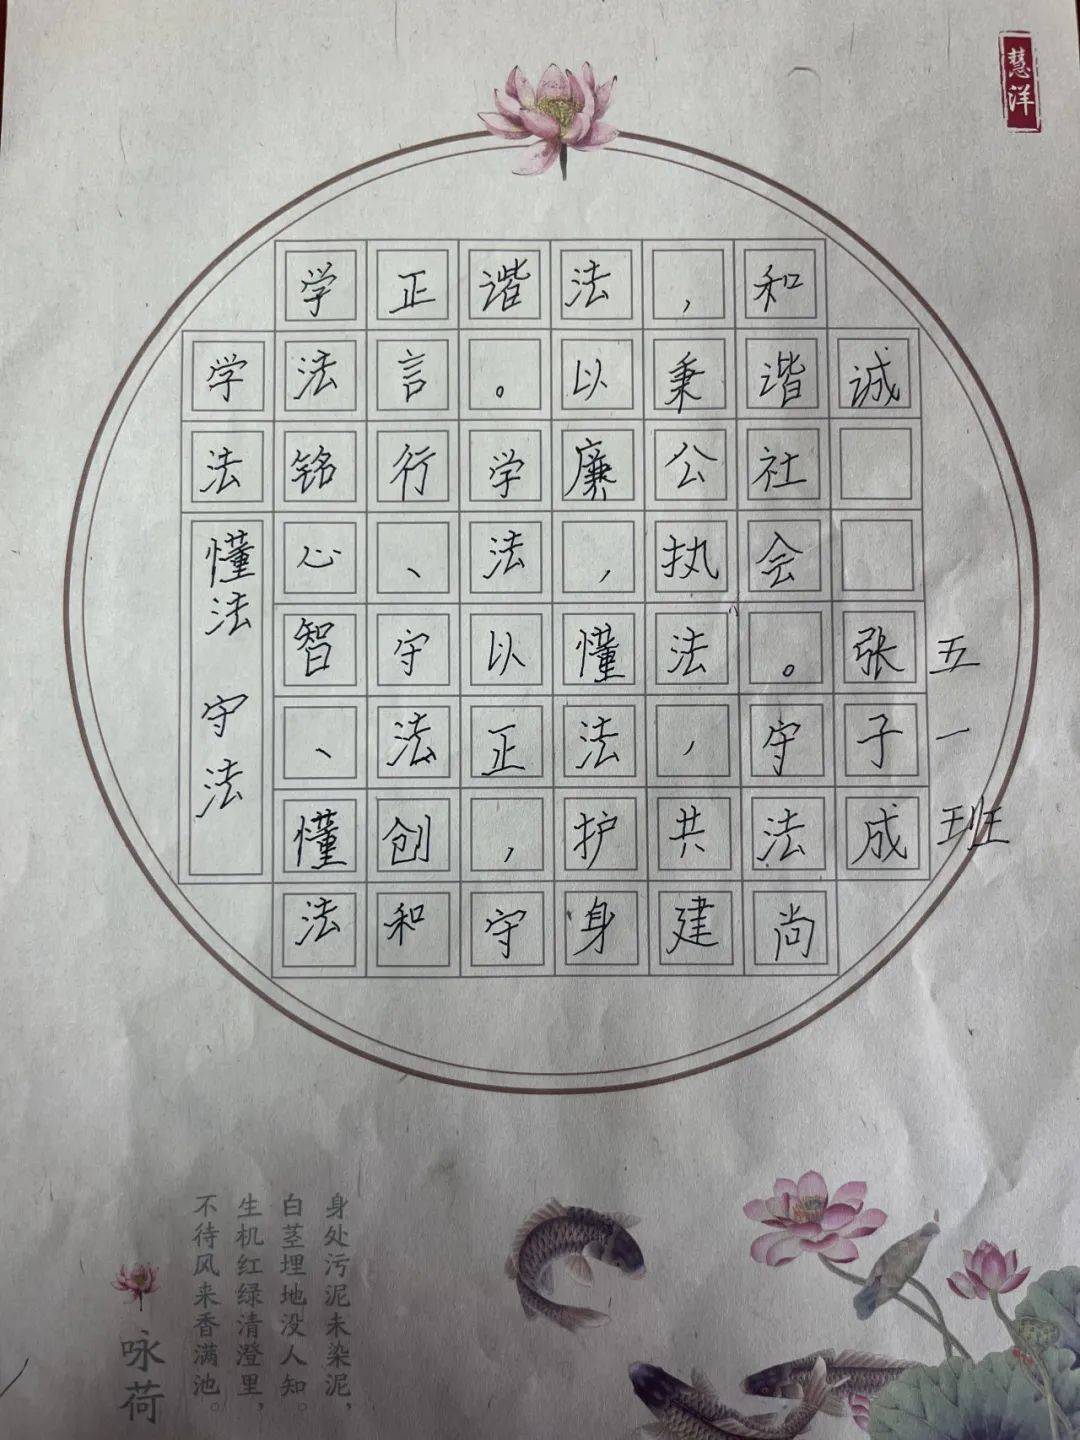 慧洋
学法懂法 守法
学法铭心智、懂法
正言行、守法创和
谐。学法以正，守
法以廉，懂法护身
，秉公执法，共建
和谐社会。守法尚
诚 张子成
五一班
咏荷
身处污泥未染泥，
白茎埋地没人知。
生机红绿清澄里，
不待风来香满池。